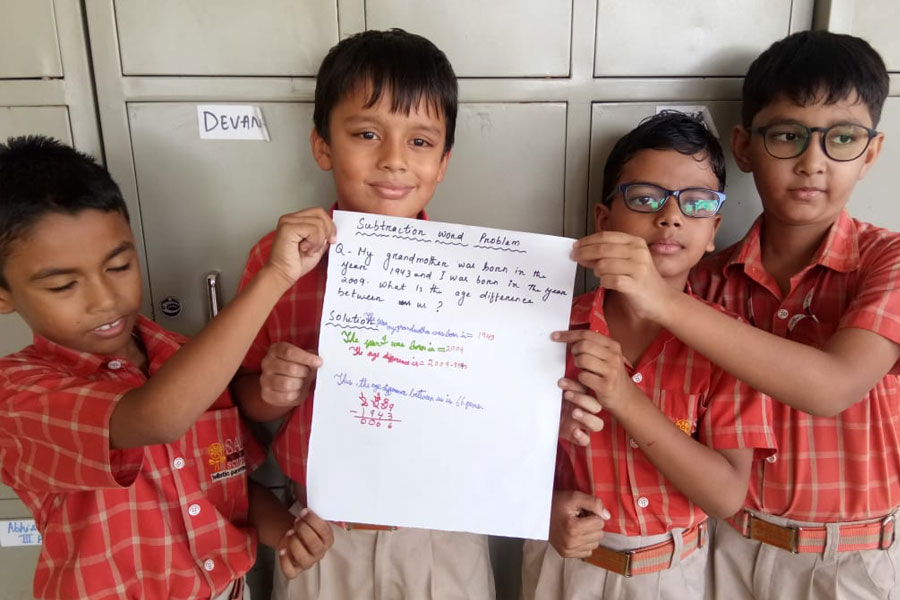 DEVAN
Subtraction Word Problem
Q - My grandmother was born in the
year 1943 and I was born in the year
2009. What is the age difference
between us ?
Solution The year my grandmother was born in = 1943
The year I was born in = 2009
The age difference is = 2009-1943
Thus, the age difference between us is 66 years.
2009
- 1943
0066
SA
Abhi
III